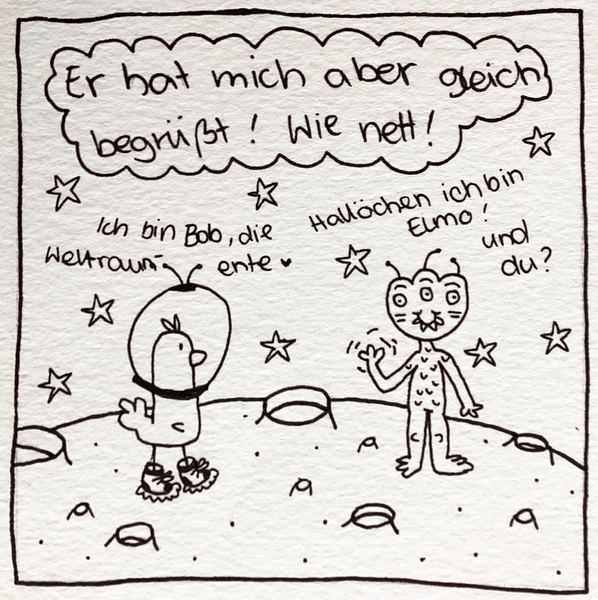 Er hat mich aber gleich
begrüßt! Wie nett!
Hallöchen ich bin
Elmo!
und
du?
Ich bin Bob, die
Weltraum-ente ♥